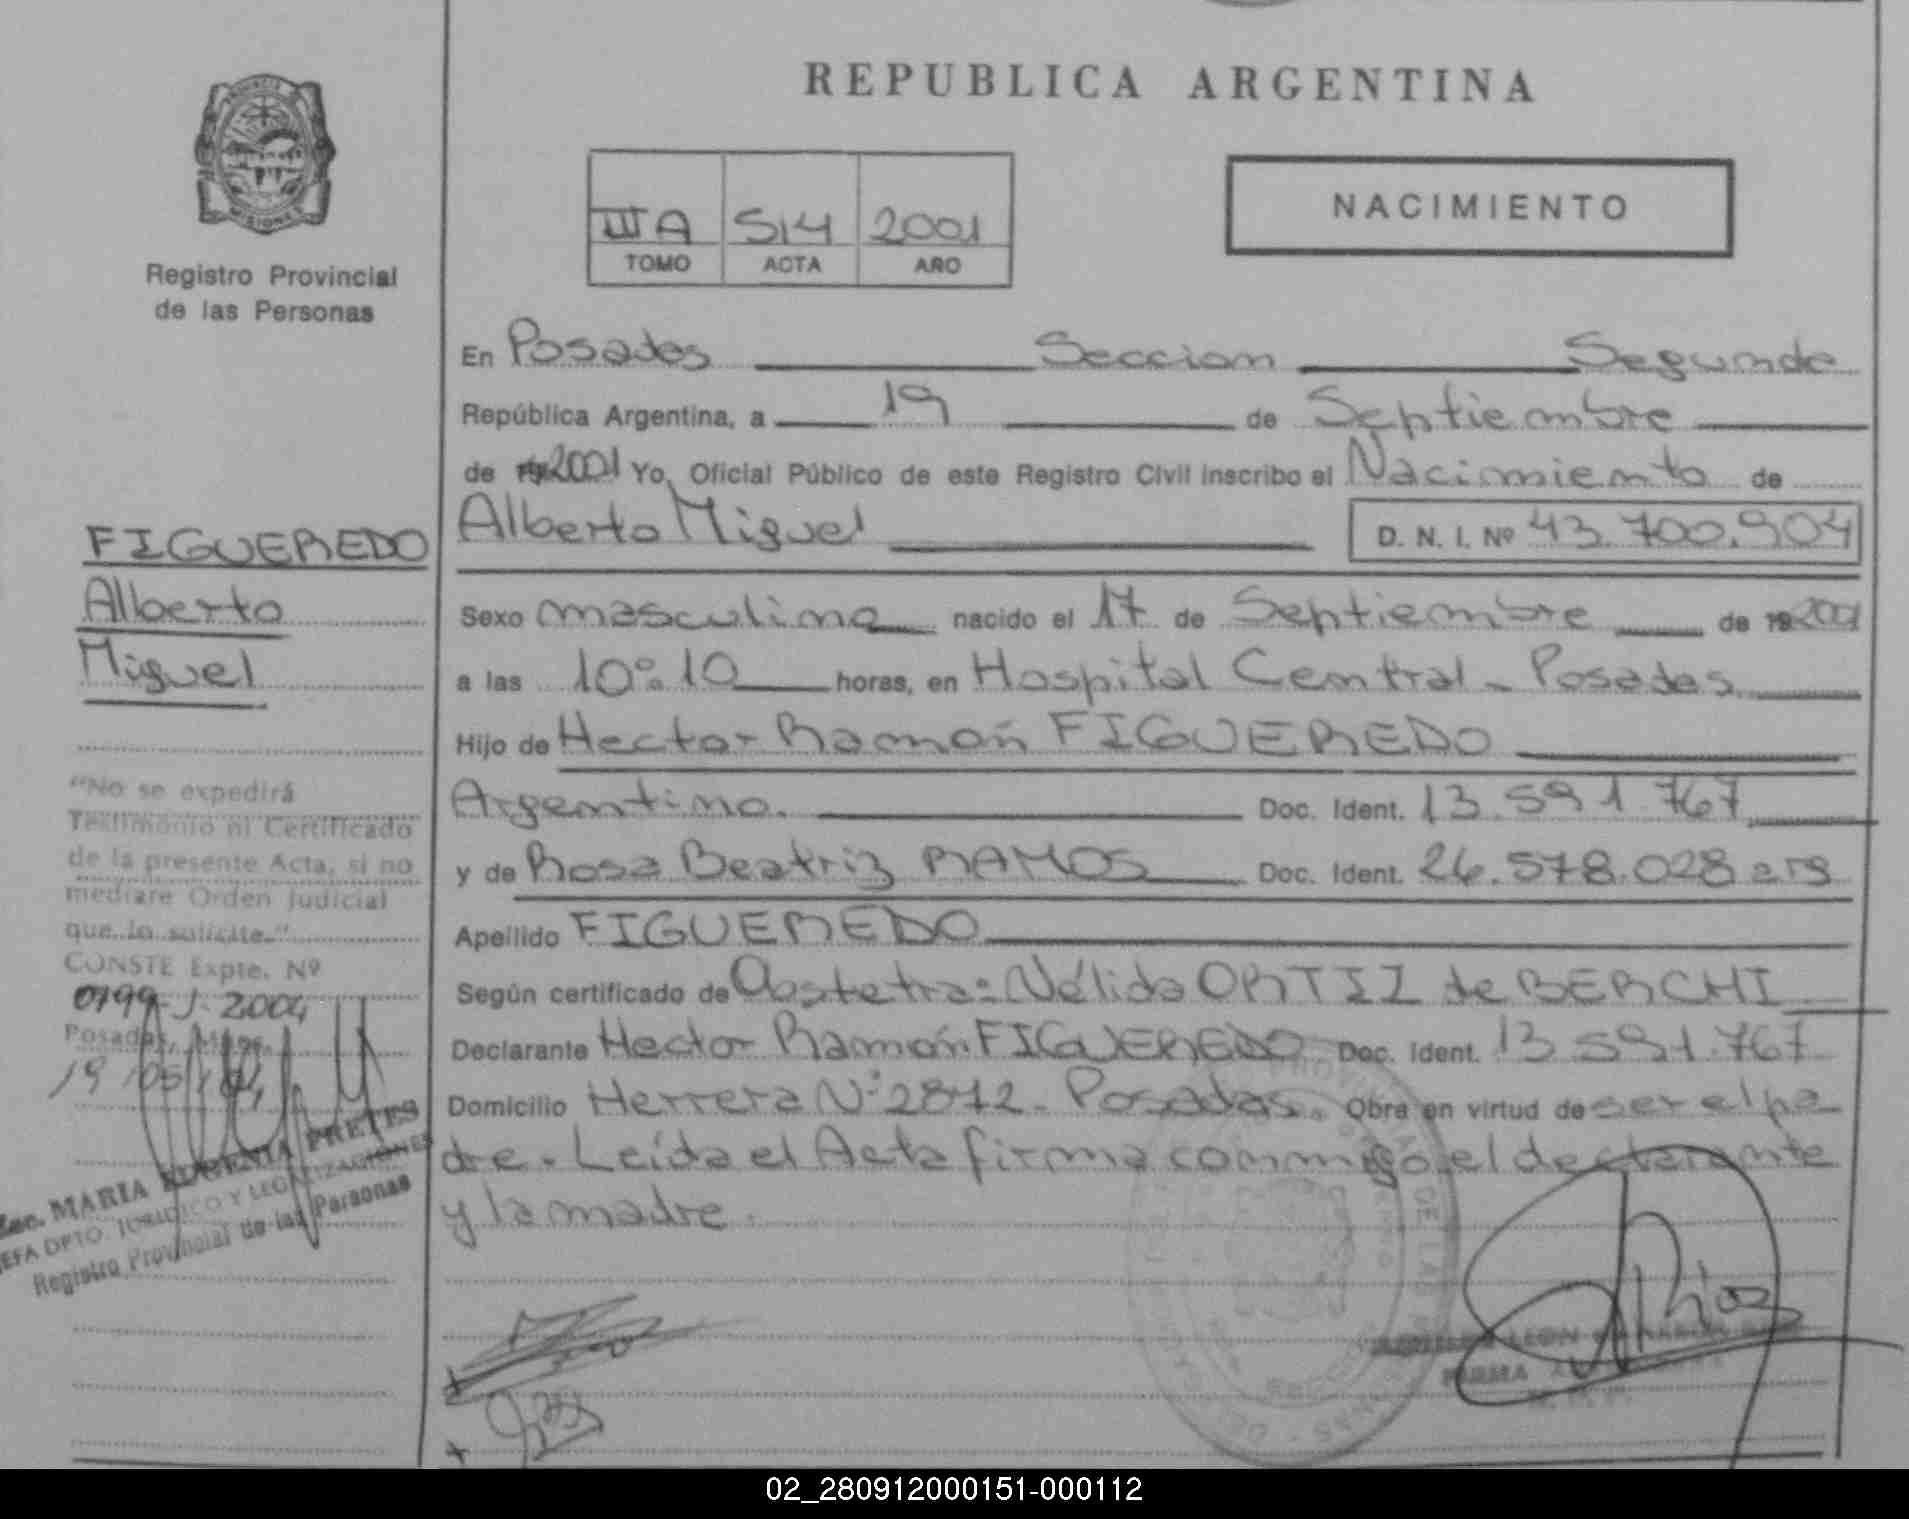 REPUBLICA ARGENTINA
MISIONES
Registro Provincial
de las Personas
III A 514 2001
TOMO ACTA AÑO
NACIMIENTO
En Posadas Seccion Segunda
República Argentina, a 19 de Septiembre
de 2001 Yo, Oficial Público de este Registro Civil inscribo el Nacimiento de
Alberto Miguel D. N. I. Nº 43.700.904
Sexo masculino nacido el 17 de Septiembre de 2001
a las 10:10 horas, en Hospital Central - Posadas
Hijo de Hector Ramón FIGUEREDO
Argentino. Doc. Ident. 13.591.767
y de Rosa Beatriz RAMOS Doc. Ident. 26.578.028 arg
Apellido FIGUEREDO
Según certificado de Obstetra: Nélida ORTIZ de BERCHI
Declarante Hector Ramón FIGUEREDO Doc. Ident. 13.591.767
Domicilio Herrera Nº 2872 - Posadas. Obra en virtud de ser el pa
dre. Leída el Acta firma conmigo el declarante
y la madre.
FIGUEREDO
Alberto
Miguel
"No se expedirá
Testimonio ni Certificado
de la presente Acta, si no
mediare Orden Judicial
que lo solicite."
CONSTE Expte. Nº
0199-J-2004
Posadas, Mnes.
19/05/04
MARIA EUGENIA PRETES
JEFA DPTO. JURIDICO Y LEGALIZACIONES
Registro Provincial de las Personas
02_280912000151-000112